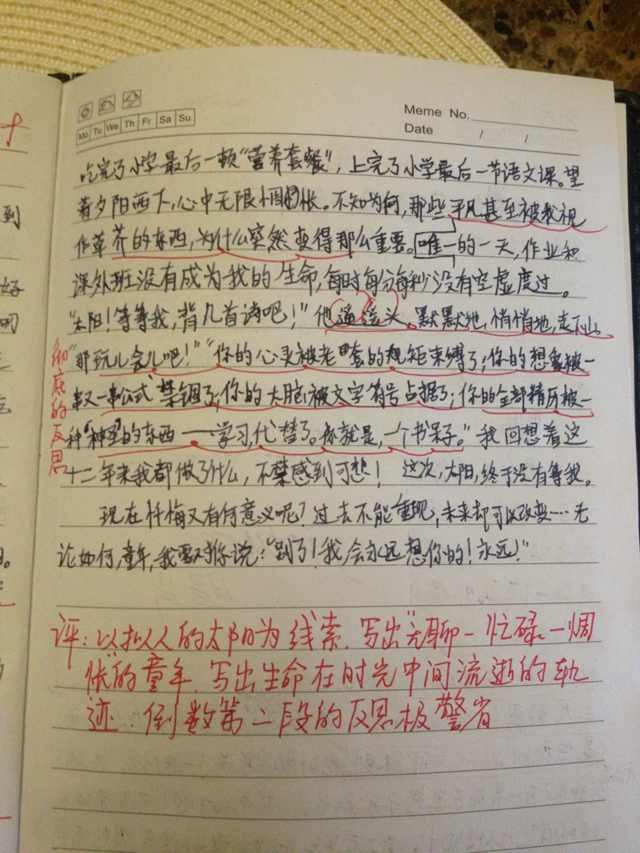 Meme No.
Mo Tu We Th Fr Sa Su
Date / /
吃完了小学最后一顿“营养套餐”,上完了小学最后一节语文课。望
着夕阳西下,心中无限惆怅。不知为何,那些平凡甚至被我视
作草芥的东西,为什么突然变得那么重要。唯一的一天,作业和
课外班没有成为我的生命,每时每分每秒没有空虚度过。
“太阳!等等我,背几首诗吧!”他遥遥头,默默地,悄悄地,走下山。
“那玩儿会儿吧!”“你的心灵被老套的规矩束缚了;你的想象被一
串又一串公式禁锢了;你的大脑被文字符号占据了;你的全部精历被一
种“神圣”的东西——学习,代替了。你就是,一个书呆子。”我回想着这
十二年来我都做了什么,不禁感到可悲!这次,太阳,终于没有等我。
现在忏悔又有何意义呢?过去不能重现,未来却可以改变…无
论如何,童年,我要对你说:“别了!我会永远想你的!永远!”
彻底的反思
评:以拟人的太阳为线索,写出“无聊—忙碌—惆
怅的童年,写出生命在时光中间流逝的轨
迹.倒数第二段的反思极警省
到
好